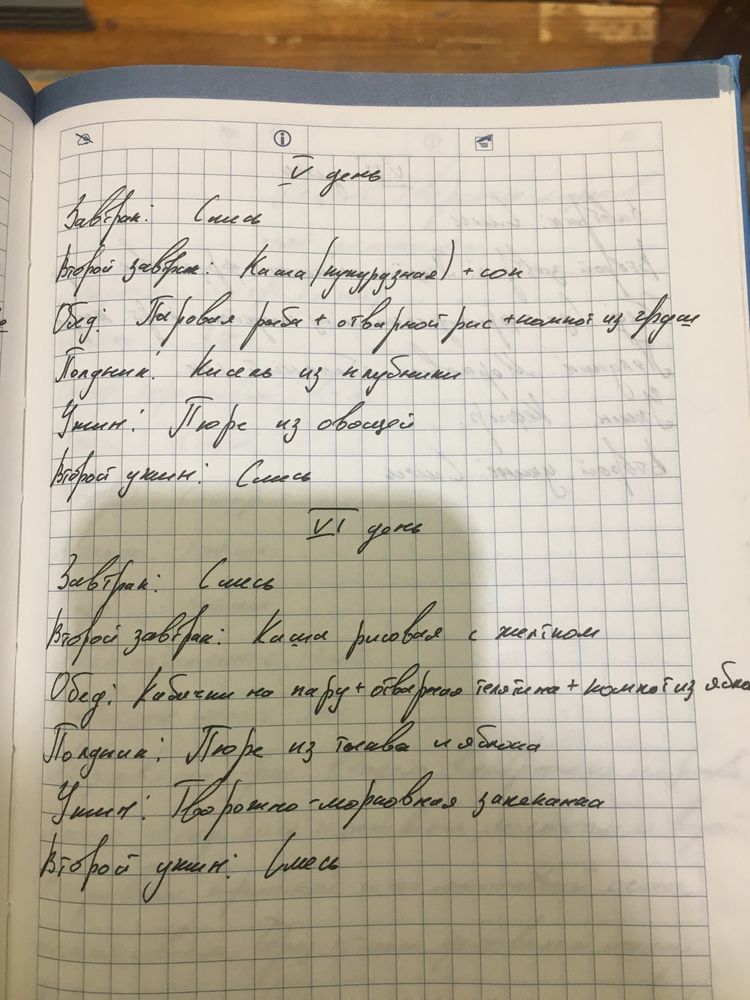 V день
Завтрак: Смесь
Второй завтрак: Каша (кукурузная) + сок
Обед: Паровая рыба + отварной рис + компот из груш
Полдник: Кисель из клубники
Ужин: Пюре из овощей
Второй ужин: Смесь
VI день
Завтрак: Смесь
Второй завтрак: Каша рисовая с желтком
Обед: Кабачки на пару + отварная телятина + компот из яблок
Полдник: Пюре из тыквы и яблока
Ужин: Творожно-морковная запеканка
Второй ужин: Смесь